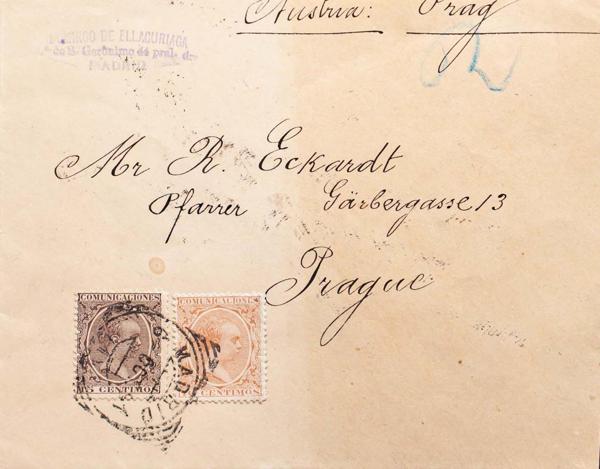 Austria: Prag
DE ELLACURIAGA
S. Gerónimo
MADRID
Mr R. Eckardt
Pfarrer Gärbergasse 13
Prague
COMUNICACIONES COMUNICACIONES
MADRID
CENTIMOS CENTIMOS